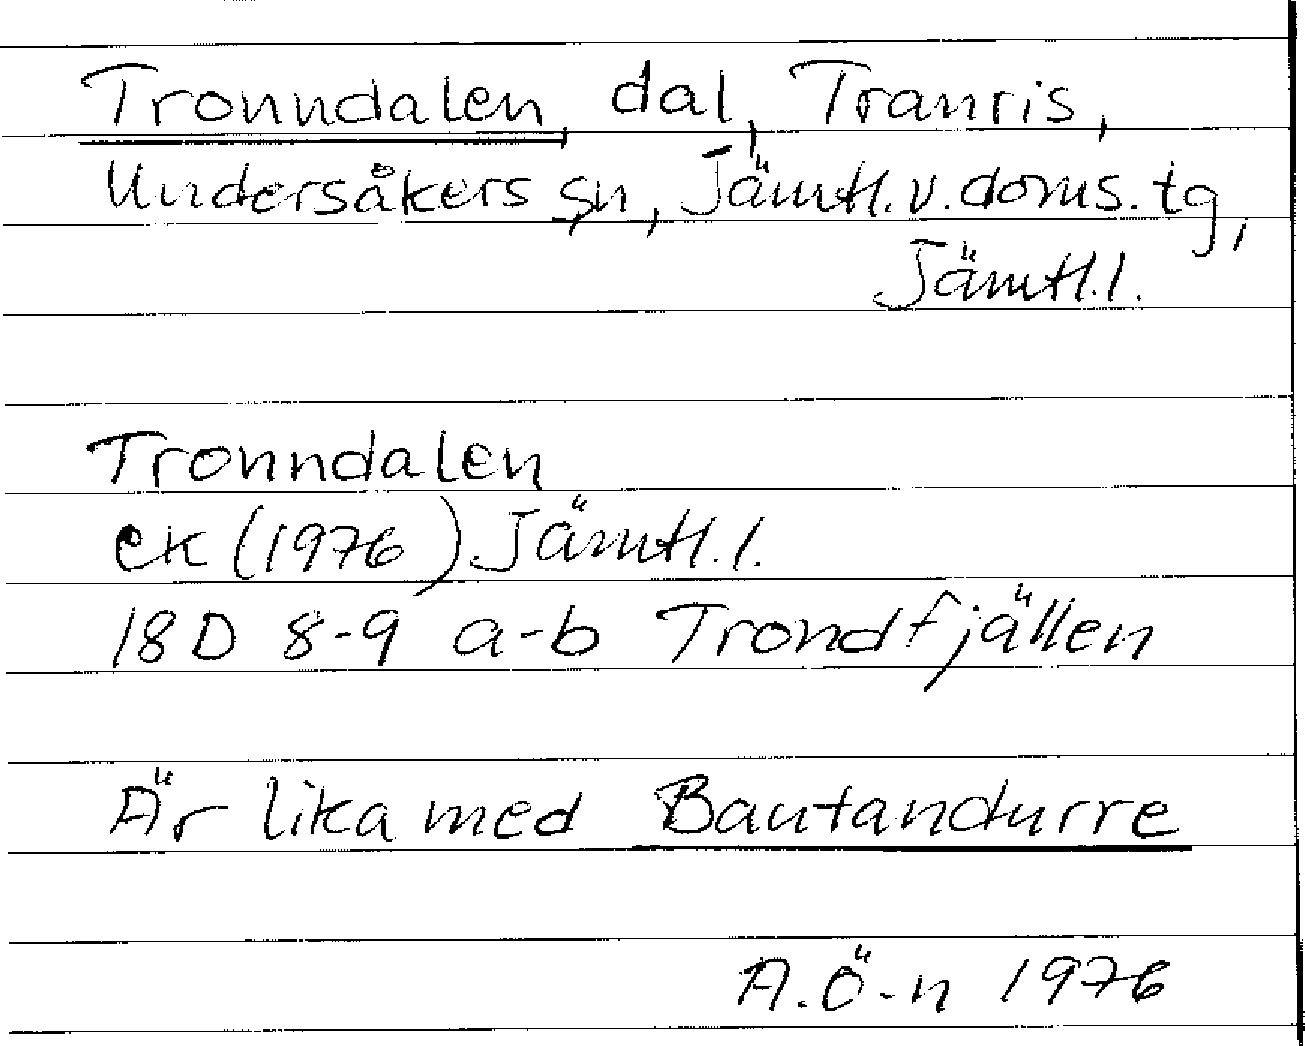 Tronndalen, dal, Tranris,
Undersåkers sn, Jämtl. v. doms. tg,
Jämtl. l.
Tronndalen
ek (1976) Jämtl. l.
18D 8-9 a-b Trondfjällen
Är lika med Bautandurre
A. Ö-n 1976